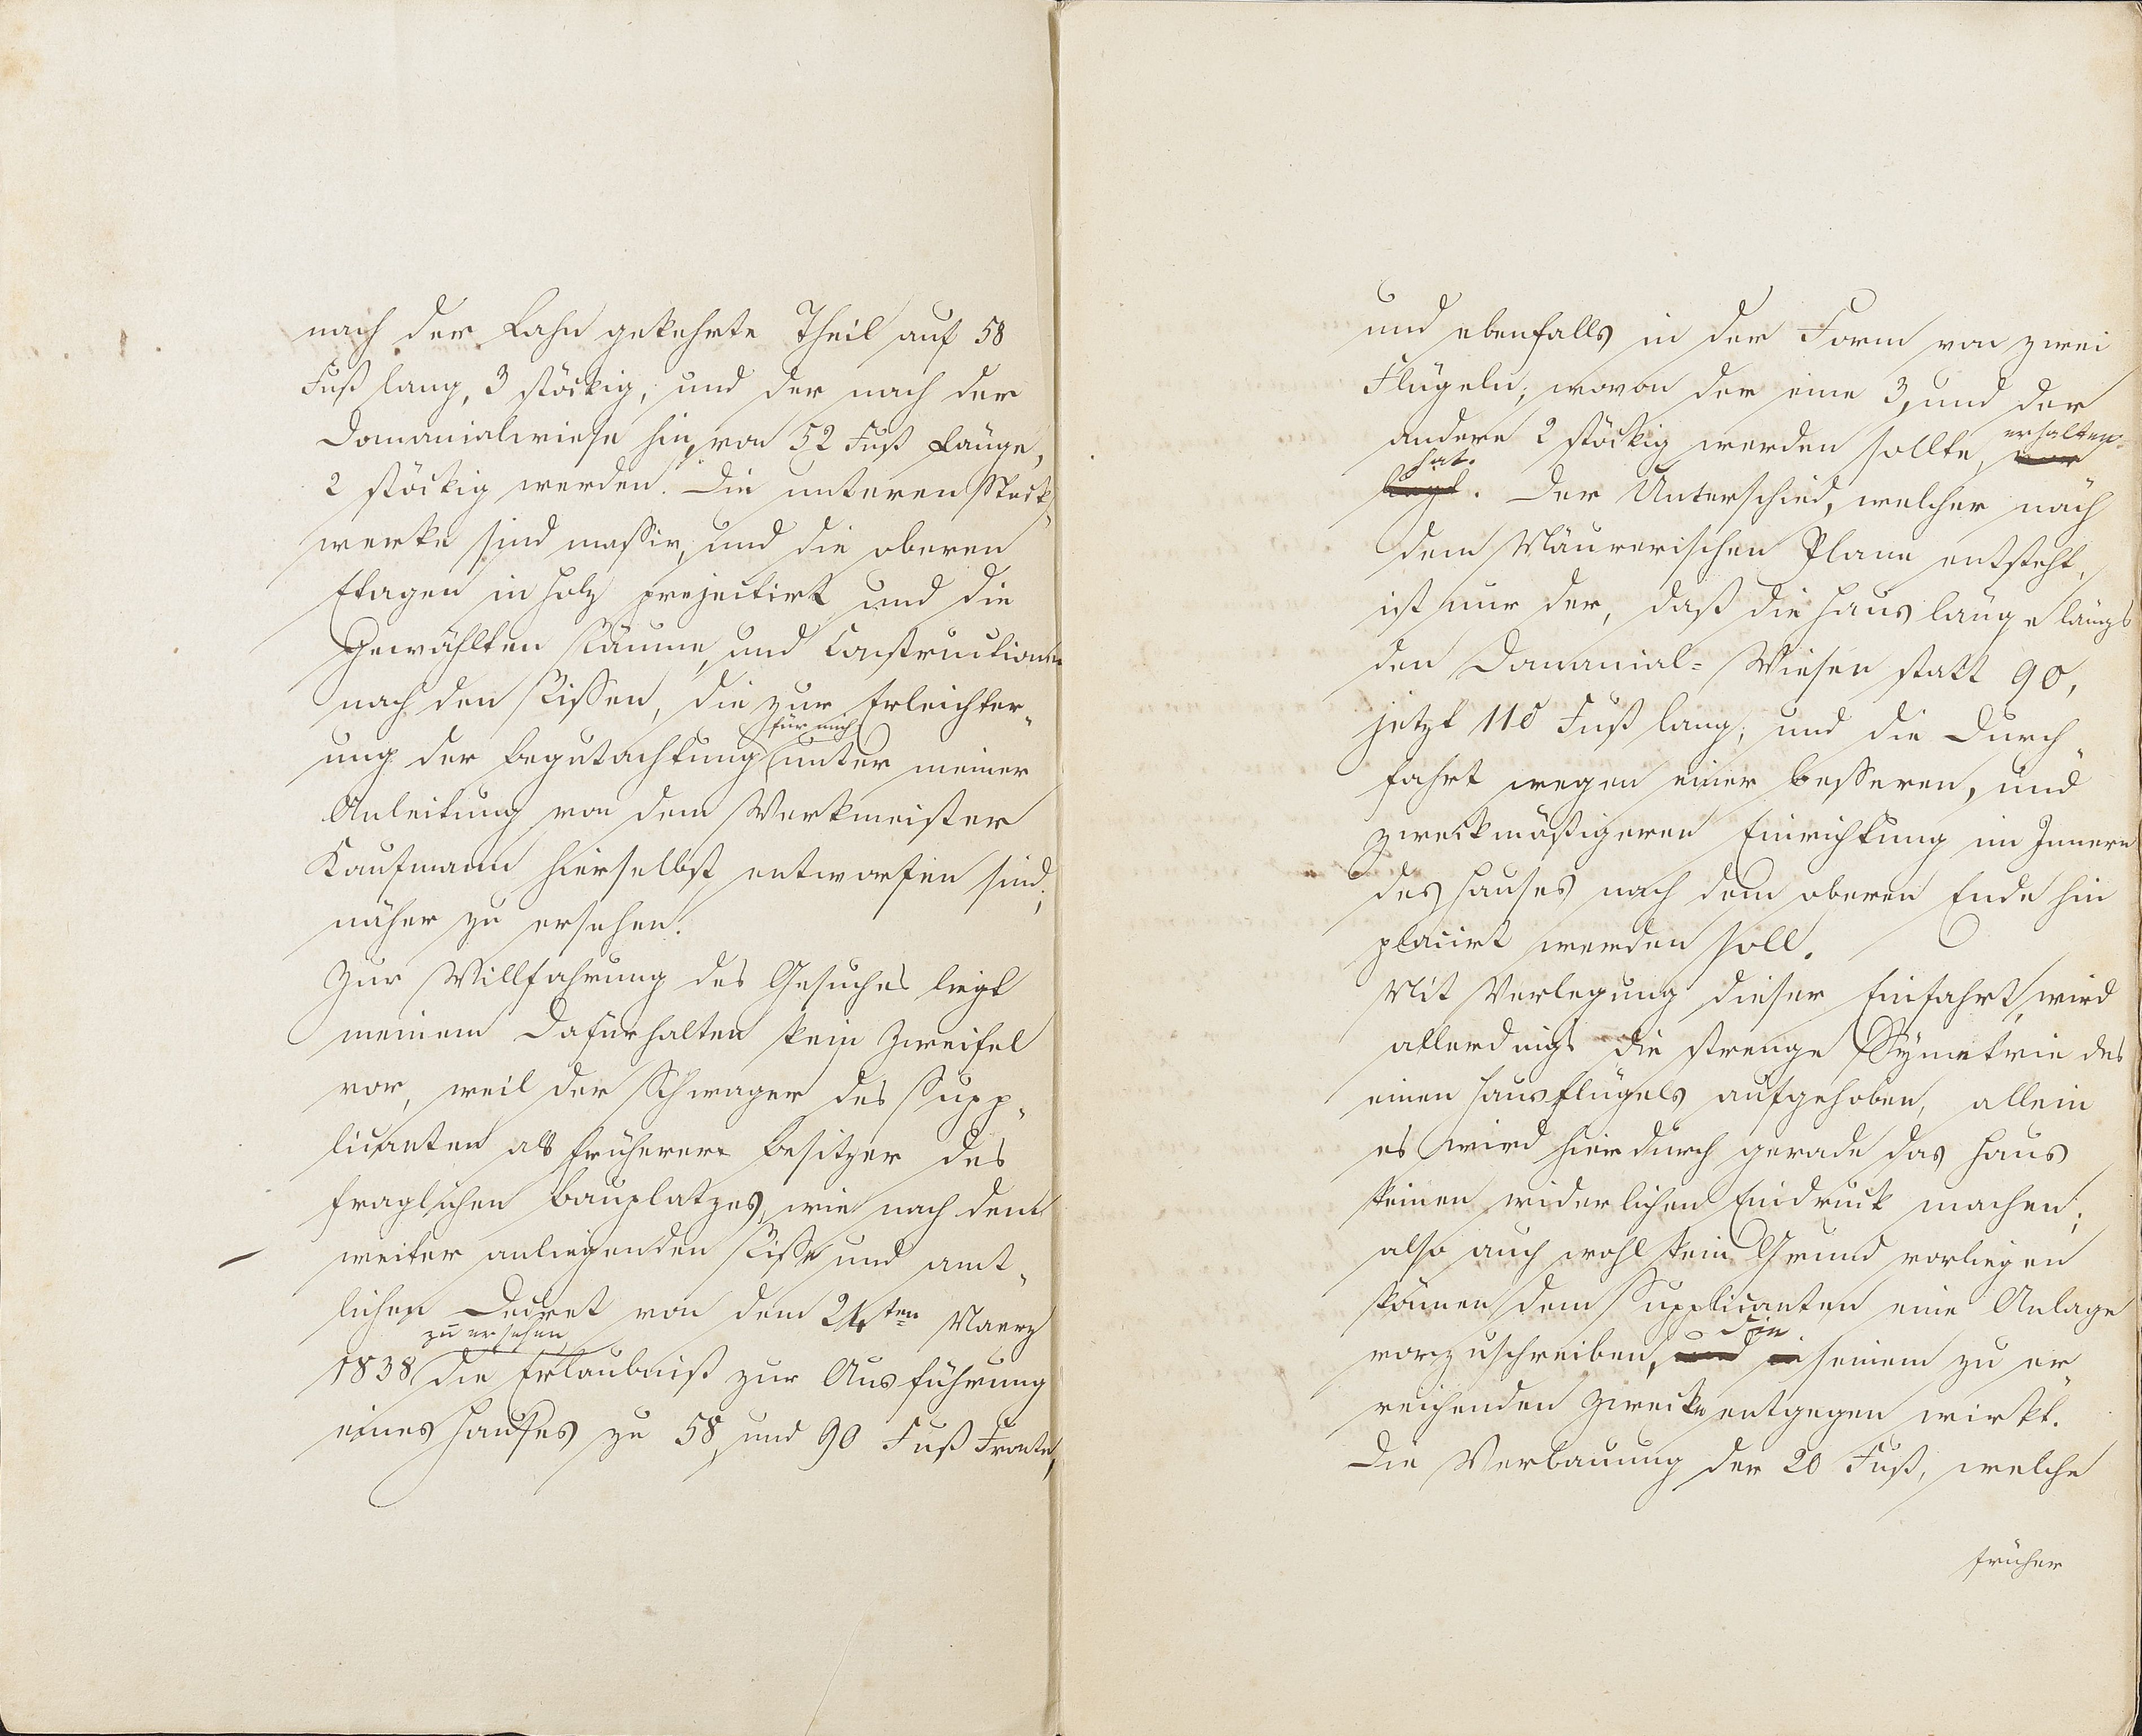 nach der Lahn gekehrte Theil auf 58
Fuß lang, 3 stöckig, und der nach der
Domanialwiese hin, von 52 Fuß Länge,
2 stöckig werden. Die unteren Stock„
werke sind massiv, und die oberen
Etagen in Holz projectirt und die
Gewählten Räume, und Constructionen
nach den Rissen, die zur Erleichter„
für mich
ung der Begutachtung unter meiner
Anleitung von dem Werkmeister
Kaufmann hierselbst entworfen sind,
näher zu ersehen.
Zur Willfahrung des Gesuches liegt
meinem Dafürhalten kein Zweifel
vor, weil der Schwager des Supp„
licanten als früherer Besitzer des
fraglichen Bauplatzes, wie nach dem
weiter anliegenden Risse und amt„
lichen Decret von dem 24ten Maerz
zu ersehen
1838 die Erlaubniß zur Ausführung
eines Hauses zu 58 und 90 Fuß Fronte,
und ebenfalls in der Form von zwei
Flügeln, wovon der eine 3, und der
erhalten
andere 2 stöckig werden sollte,
hat.
Der Unterschied, welcher nach
dem Mäurerischen Plane entsteht,
ist nur der, daß die Hauslänge längs
den Domanial= Wiesen statt 90,
jetzt 110 Fuß lang, und die Durch„
fahrt wegen einer besseren, und
zweckmäßigeren Einrichtung im Innern
des Hauses nach dem oberen Ende hin
placirt werden soll.
Mit Verlegung dieser Einfahrt, wird
allerdings die strenge Symetrie des
einen Hausflügels aufgehoben, allein
es wird hierdurch gerade das Haus
keinen widerlichen Eindruck machen;
also auch wohl kein Grund vorliegen
können dem Supplicanten eine Anlage
die
vorzuschreiben, seinem zu er„
reichenden Zwecke entgegen wirkt.
Die Verbauung der 20 Fuß, welche
früher